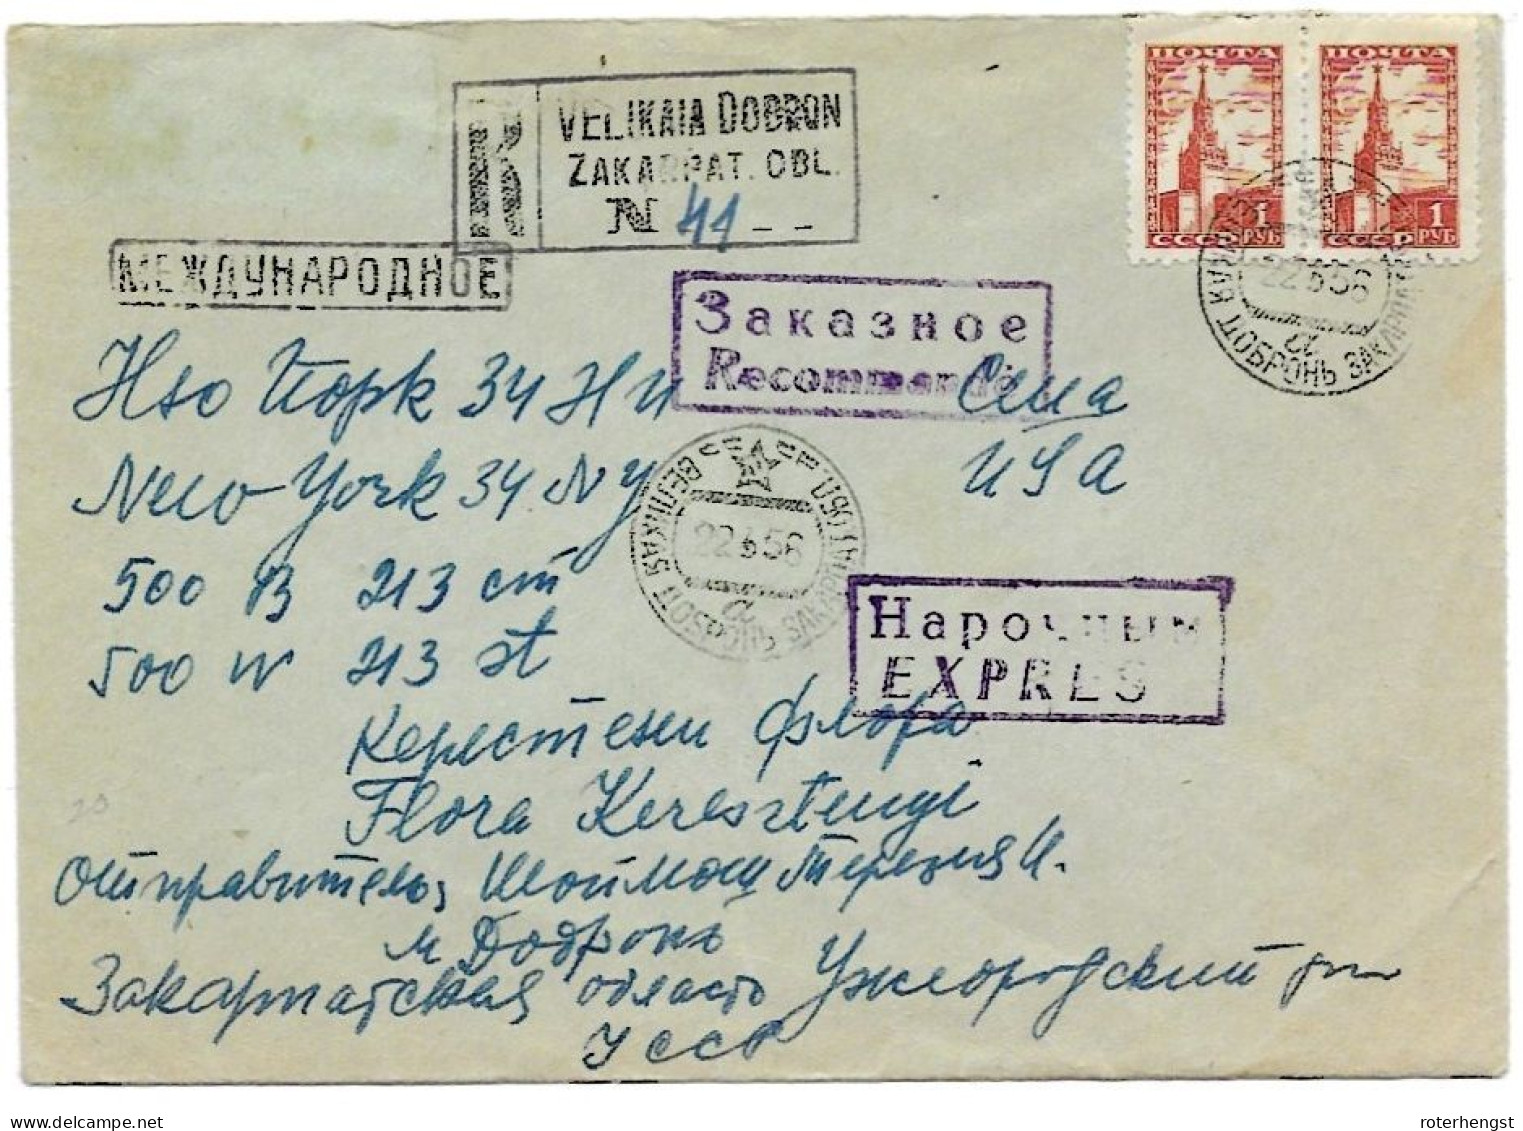 ПОЧТА
1 РУБ
СССР
ПОЧТА
1 РУБ
СССР
R VELIKAIA DOBRON
ZAKARPAT. OBL.
N 41 _ _
МЕЖДУНАРОДНОЕ
Заказное
Recommandé
22 6 56
а
ДОБРОНЬ ЗАКАРПАТ
Нью Йорк 34 Н И США
New York 34 N Y USA
ВЕЛИКАЯ ДОБРОНЬ ЗАКАРПАТ
22 6 56
а
500 В 213 ст
500 W 213 st
Нарочным
EXPRES
Керестени Флора
Flora Keresztengi
Отправитель, Шоймош Терезия И.
Добронь
Закарпатская область Ужгородский
УССР
20
roterhengst